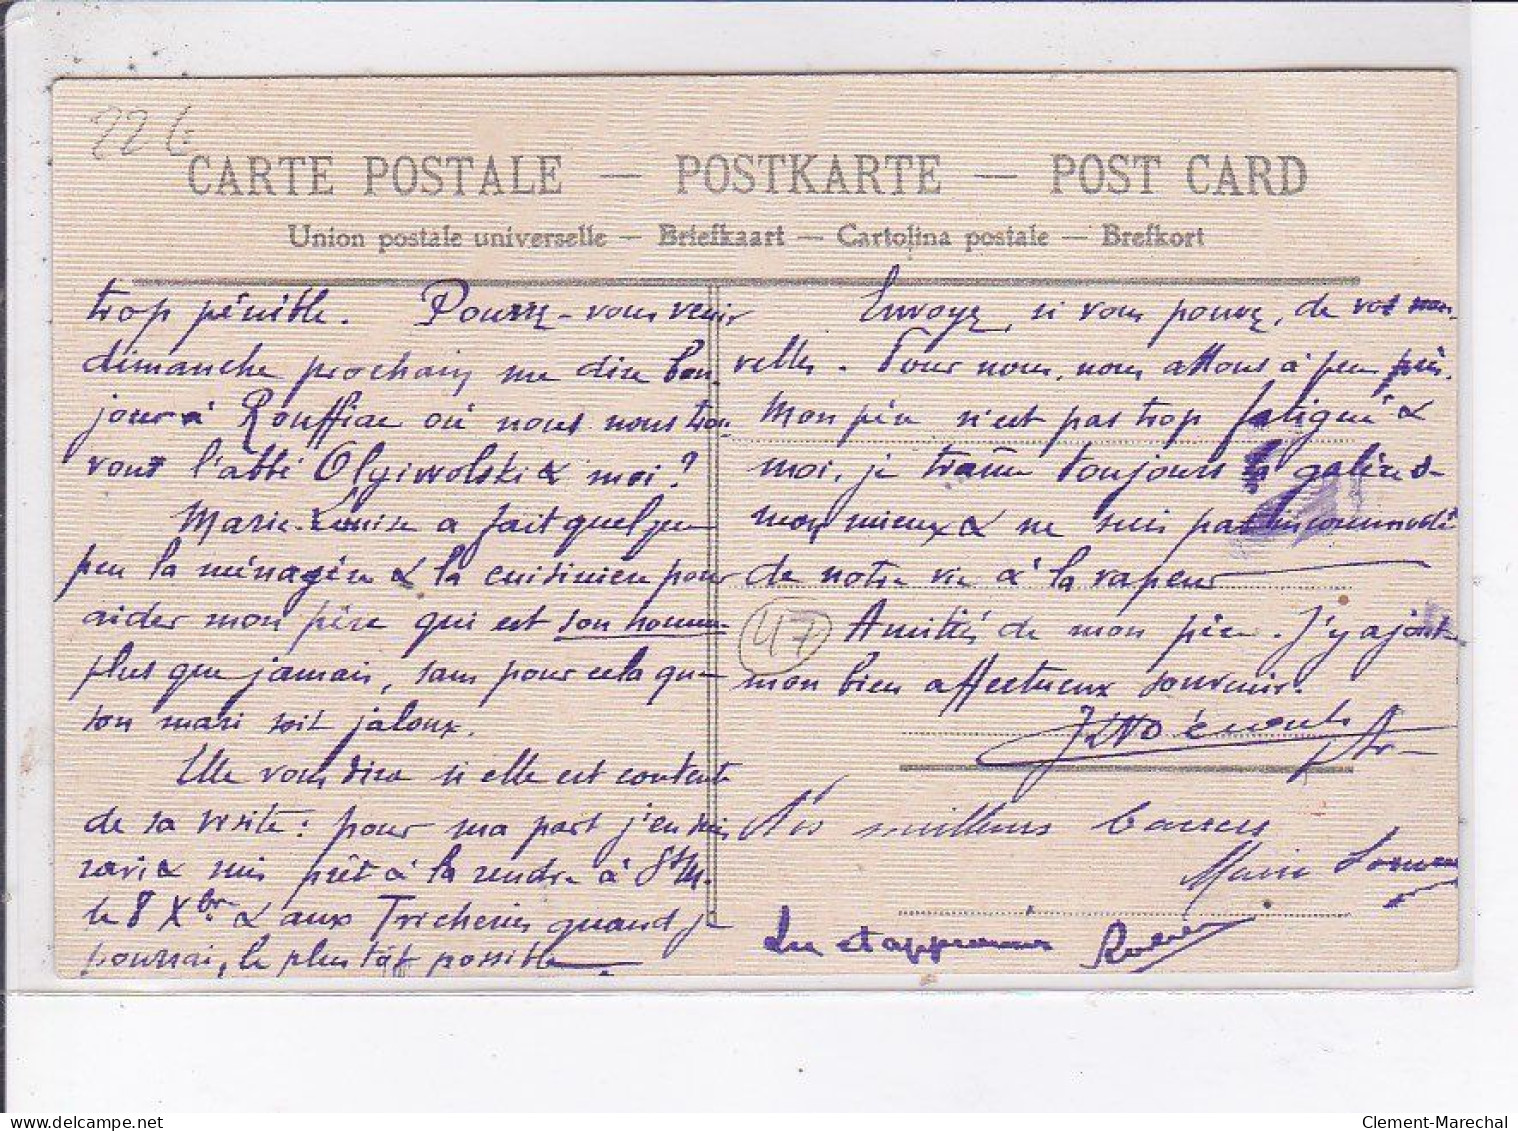 226
CARTE POSTALE — POSTKARTE — POST CARD
Union postale universelle — Briefkaart — Cartolina postale — Brefkort
trop pénible. Pourrez-vous venir
dimanche prochain me dire bon-
jour à Rouffiac où nous nous trou-
vons l'abbé & moi?
Marie-Louise a fait quelque
peu la ménagère & la cuisinière pour
aider mon père qui est son homme
plus que jamais, sans pour cela que
son mari soit jaloux.
Elle vous dira si elle est contente
de sa visite: pour ma part j'en suis
ravi & suis prêt à la rendre à St M.
le 8 Xbre & aux Tricheries quand je
pourrai, le plus tôt possible.
Envoyez, si vous pouvez, de vos nou-
velles. Pour nous, nous allons à peu près.
Mon père n'est pas trop fatigué &
moi, je traîne toujours la galère de
mon mieux & ne suis pas incommodé
de notre vie à la vapeur
47
Amitiés de mon père. J'y ajoute
mon bien affectueux souvenir.
Nos meilleurs baisers
Marie
Lu et approuvé
Clement-Marechal